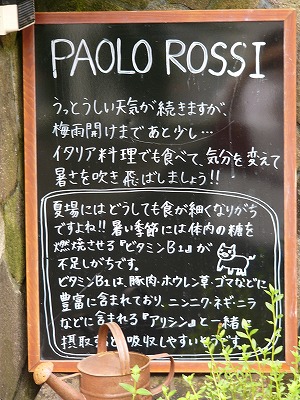 PAOLO ROSSI
うっとうしい天気が続きますが、
梅雨開けまであと少し…
イタリア料理でも食べて、気分を変えて
暑さを吹き飛ばしましょう!!
夏場にはどうしても食が細くなりがち
ですよね!! 暑い季節には体内の糖を
燃焼させる『ビタミンB1』が
不足しがちです。
ビタミンB1は、豚肉・ホウレン草・ゴマなどに
豊富に含まれており、ニンニク・ネギ・ニラ
などに含まれる『アリシン』と一緒に
摂取すると吸収しやすいそうです。